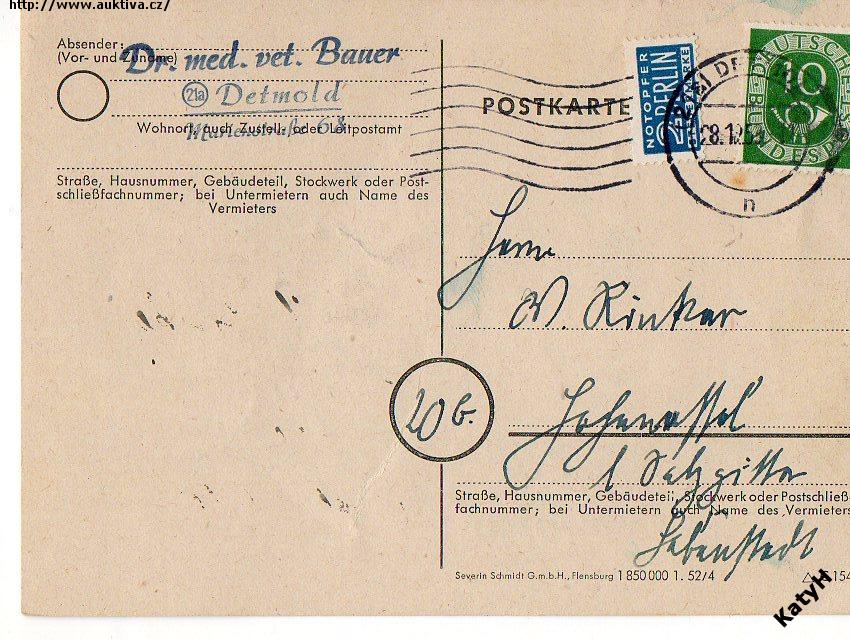 http://www.auktiva.cz/
Absender:
(Vor- und Zuname)
Dr. med. vet. Bauer
21a Detmold
Wohnort, auch Zustell- oder Leitpostamt
Marienstraße 68
Straße, Hausnummer, Gebäudeteil, Stockwerk oder Post-
schließfachnummer; bei Untermietern auch Name des
Vermieters
POSTKARTE
NOTOPFER
2 BERLIN
STEUERMARKE
DEUTSCHE
BUNDESPOST
10
n
Herrn
W. Rinker
20b.
Hohenassel
Salzgitter
Straße, Hausnummer, Gebäudeteil, Stockwerk oder Postschließ
fachnummer; bei Untermietern auch Name des Vermieters
Lebenstedt
Severin Schmidt G.m.b.H., Flensburg 1 850 000 1. 52/4
KatyH